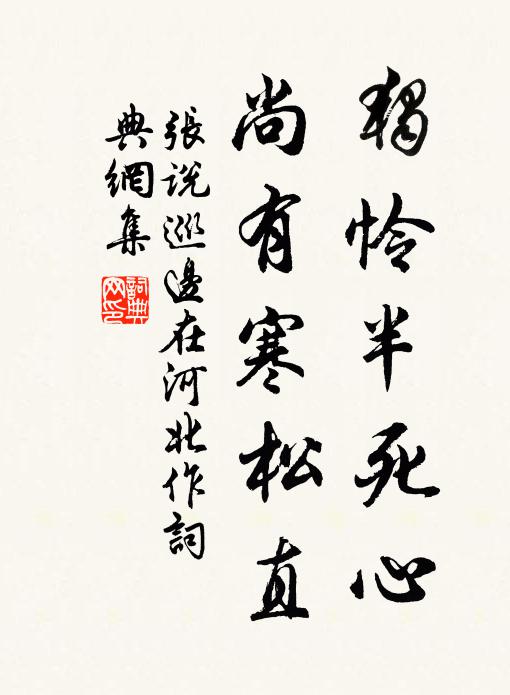 獨怜半死心
尚有寒松直
張說巡邊在河北作詞
典網集
詞典
网印